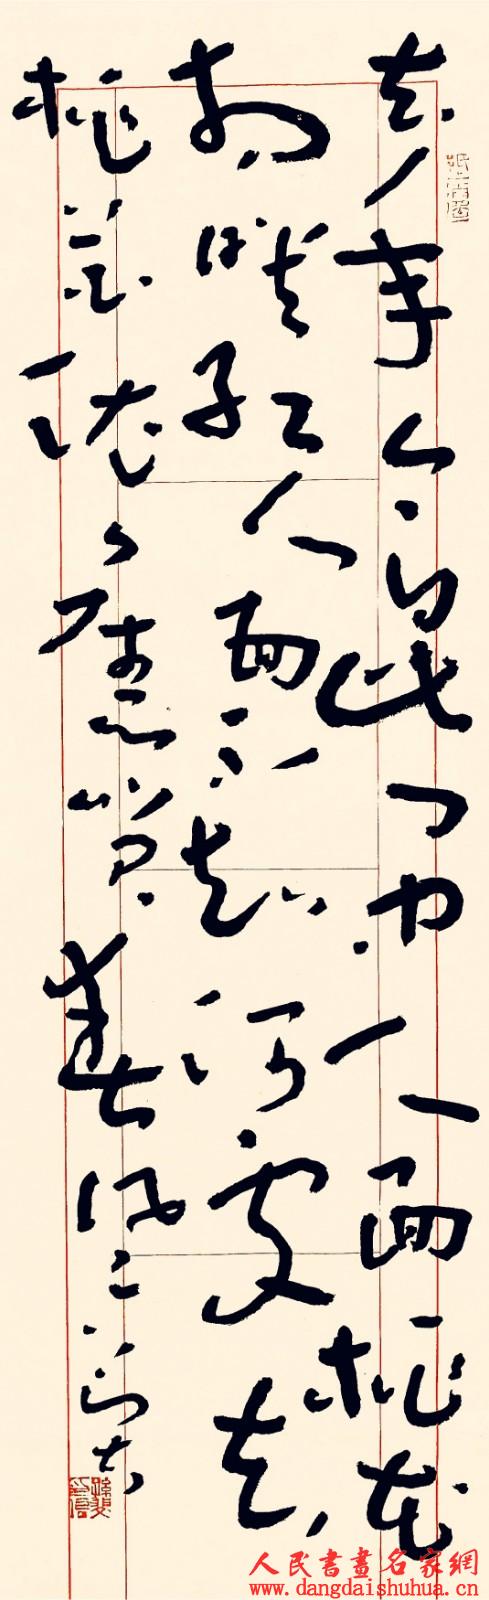 去年今日此門中人面桃花
相映紅人面不知何處去
桃花依舊笑春風
人民書畫名家網
www.dangdaishuhua.cn